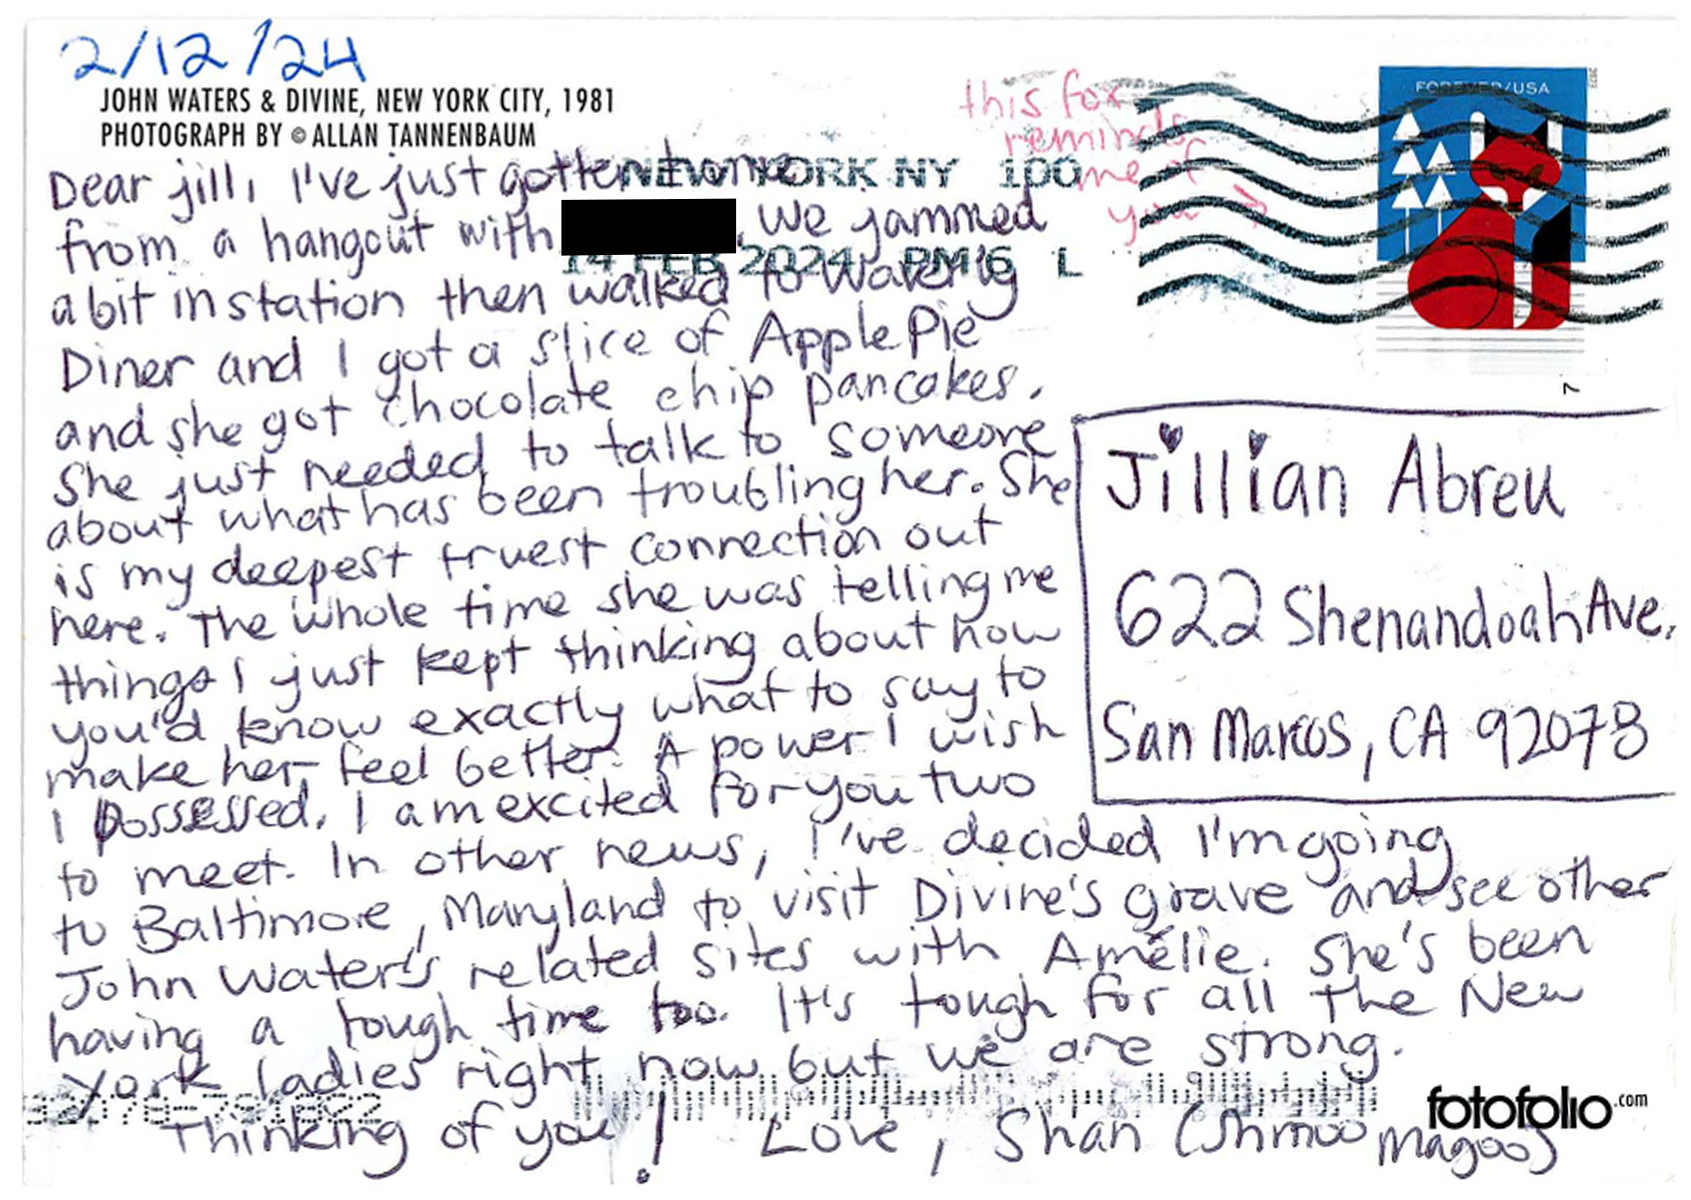 2/12/24
JOHN WATERS & DIVINE, NEW YORK CITY, 1981
PHOTOGRAPH BY © ALLAN TANNENBAUM
this fox
reminds
me of
you →
FOREVER/USA
2022
NEW YORK NY 100
14 FEB 2024 PM 6 L
Dear jill, I've just gotten home
from a hangout with . We jammed
a bit in station then walked to Waverly
Diner and I got a slice of Apple Pie
and she got chocolate chip pancakes.
She just needed to talk to someone
about what has been troubling her. She
is my deepest truest connection out
here. The whole time she was telling me
things I just kept thinking about how
you'd know exactly what to say to
make her feel better. A power I wish
I possessed. I am excited for you two
to meet. In other news, I've decided I'm going
to Baltimore, Maryland to visit Divine's grave and see other
John Water's related sites with Amélie. She's been
having a tough time too. It's tough for all the New
York ladies right now but we are strong.
Thinking of you! Love, Shan (Shmoo Magoo)
Jillian Abreu
622 Shenandoah Ave,
San Marcos, CA 92078
7
fotofolio.com